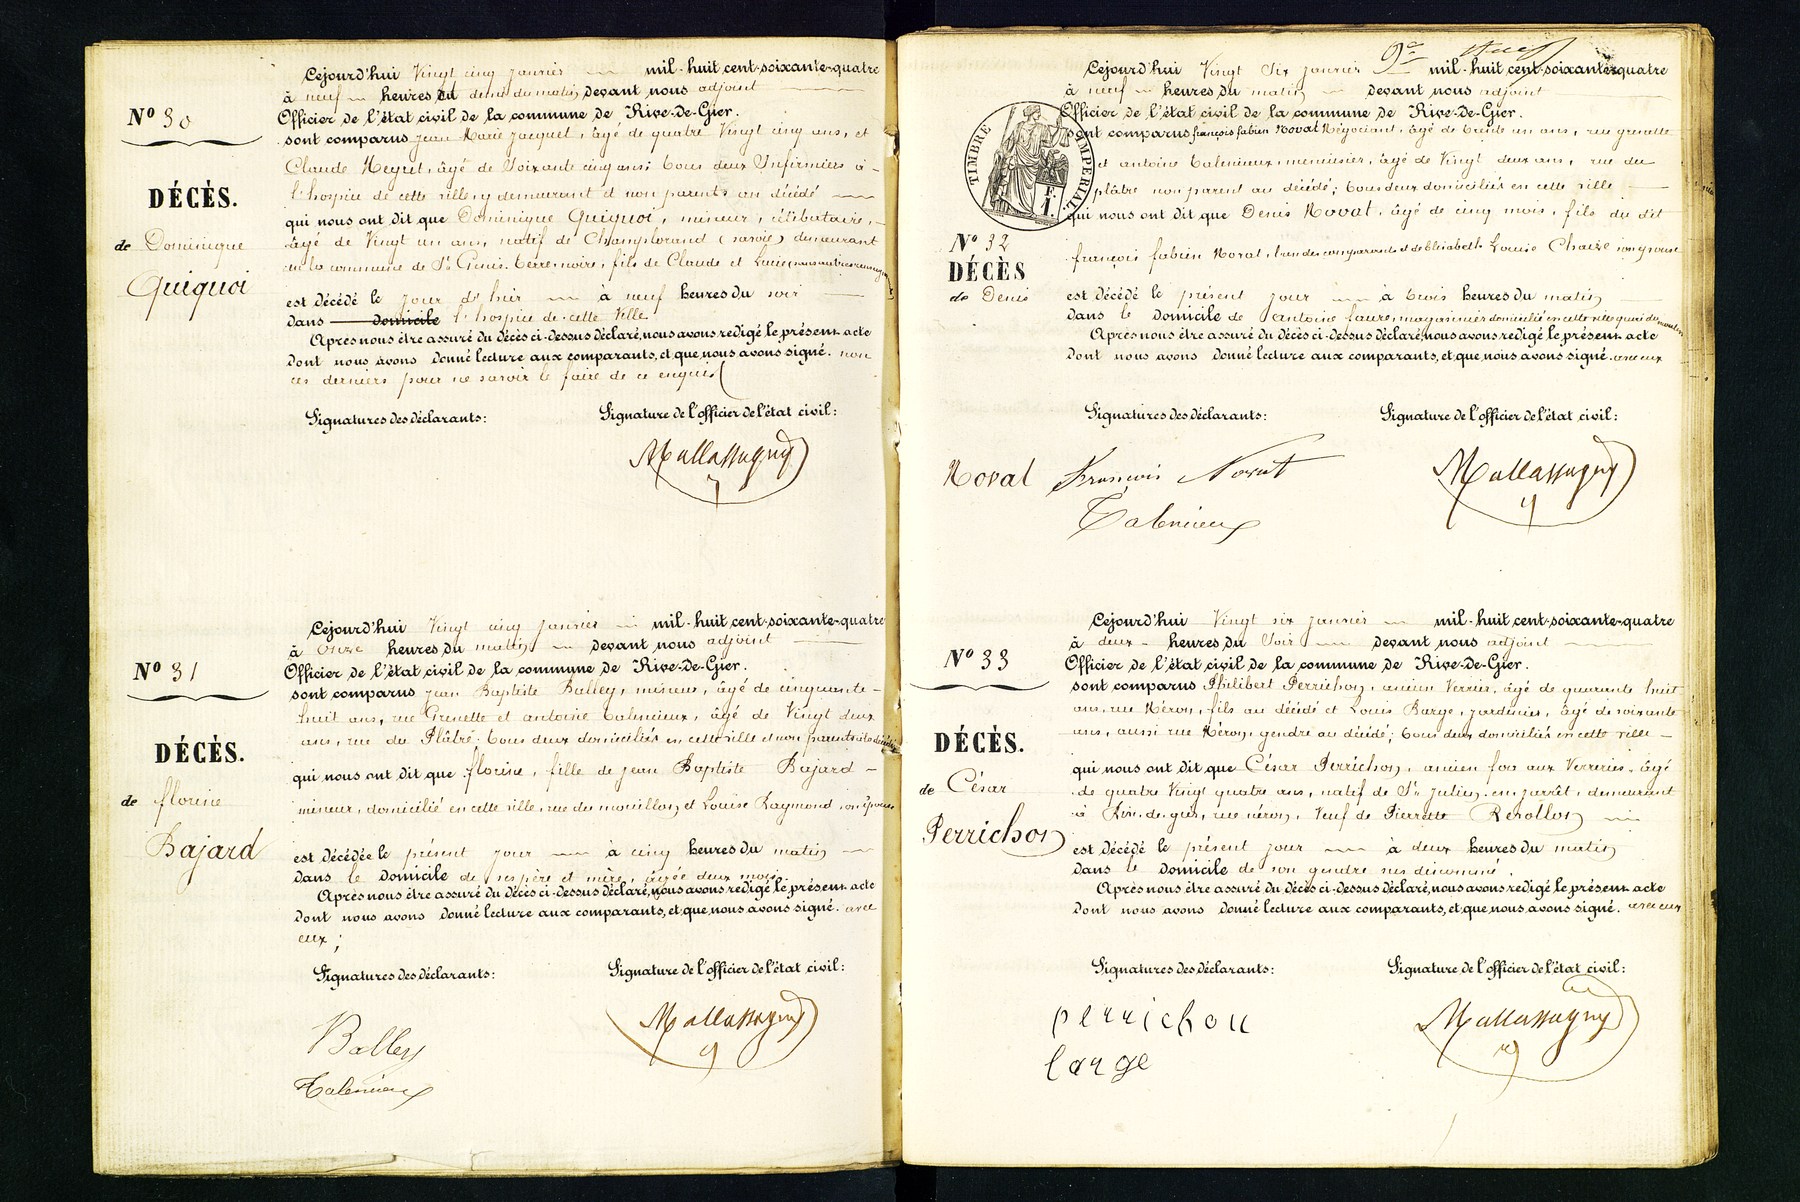 Nº 30
DÉCÈS.
de Dominique
Quiquoi
Cejourd'hui Vingt cinq janvier mil-huit cent-soixante-quatre
à neuf heures du demi du matin devant nous adjoint
Officier de l'état civil de la commune de Rive-De-Gier.
sont comparus jean Marie jacquet, âgé de quatre Vingt cinq ans, et
Claude Neyret, âgé de Soixante cinq ans; tous deux Infirmiers à
l'hospice de cette ville, y demeurant et non parents au décédé
qui nous ont dit que Dominique Quiquoi, mineur, célibataire,
âgé de Vingt un ans, natif de (savoie) demeurant
en la commune de St Genis-terre-noire, fils de Claude et Lucie
est décédé le jour d'hier à neuf heures du soir
dans domicile l'hospice de cette Ville
Après nous être assuré du décès ci-dessus déclaré, nous avons redigé le présent acte
dont nous avons donné lecture aux comparants, et que nous avons signé. non
ces derniers pour ne savoir le faire de ce enquis
Signatures des déclarants:
Signature de l'officier de l'état civil:
Mallassagny
Nº 31
DÉCÈS.
de florine
Bajard
Cejourd'hui Vingt cinq janvier mil-huit cent-soixante-quatre
à Onze heures du matin devant nous adjoint
Officier de l'état civil de la commune de Rive-De-Gier.
sont comparus jean Baptiste Balley, mineur, âgé de cinquante
huit ans, rue Grenette et antoine talmieux, âgé de Vingt deux
ans, rue du Plâtre; tous deux domiciliés en cette ville et non parents à la décédée
qui nous ont dit que florine, fille de jean Baptiste Bajard
mineur, domicilié en cette ville, rue du mouillon, et Louise Raymond son épouse
est décédée le présent jour à cinq heures du matin
dans le domicile de ses père et mère, âgée deux mois.
Après nous être assuré du décès ci-dessus déclaré, nous avons redigé le présent acte
dont nous avons donné lecture aux comparants, et que nous avons signé. avec
eux;
Signatures des déclarants:
Signature de l'officier de l'état civil:
Balley
Talmieux
Mallassagny
9e
TIMBRE IMPERIAL
F.
1.
Nº 32
DÉCÈS
de Denis
Noval
Cejourd'hui Vingt Six janvier mil-huit cent-soixante-quatre
à neuf heures du matin devant nous adjoint
Officier de l'état civil de la commune de Rive-De-Gier.
sont comparus françois fabien Noval Négociant, âgé de trente un ans, rue grenette
et antoine talmieux, menuisier, âgé de Vingt deux ans, rue du
plâtre non parent au décédé; tous deux domiciliés en cette ville
qui nous ont dit que Denis Noval, âgé de cinq mois, fils du dit
françois fabien Noval, l'un des comparants et de Elisabeth Louise Chaize son épouse
est décédé le présent jour à trois heures du matin
dans le domicile de antoine faure, magasinier domicilié en cette ville quai du mouillon
Après nous être assuré du décès ci-dessus déclaré, nous avons redigé le présent acte
dont nous avons donné lecture aux comparants, et que nous avons signé. avec eux
Signatures des déclarants:
Signature de l'officier de l'état civil:
François Noval
Talmieux
Mallassagny
Nº 33
DÉCÈS.
de César
Perrichon
Cejourd'hui Vingt six janvier mil-huit cent-soixante-quatre
à deux heures du Soir devant nous adjoint
Officier de l'état civil de la commune de Rive-De-Gier.
sont comparus Philibert Perrichon, ancien Verrier, âgé de quarante huit
ans, rue Néron, fils au décédé et Louis Barge, jardinier, âgé de soixante
ans, aussi rue Néron, gendre au décédé; tous deux domiciliés en cette ville
qui nous ont dit que César Perrichon, ancien aux Verreries, âgé
de quatre Vingt quatre ans, natif de St julien-en-jarrêt, demeurant
à Rive-de-gier, rue néron, Veuf de Pierrette Revollon
est décédé le présent jour à deux heures du matin
dans le domicile de son gendre sus dénommé.
Après nous être assuré du décès ci-dessus déclaré, nous avons redigé le présent acte
dont nous avons donné lecture aux comparants, et que nous avons signé. avec eux
Signatures des déclarants:
Signature de l'officier de l'état civil:
perrichon
barge
Mallassagny